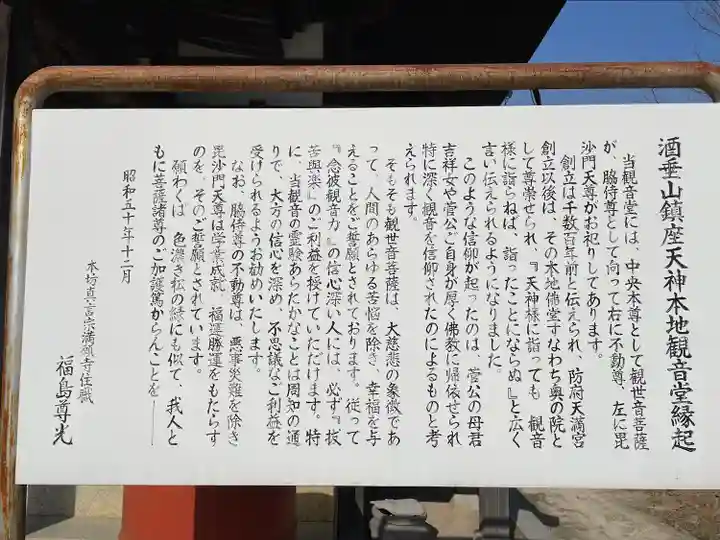 酒垂山鎮座天神本地観音堂縁起
当観音堂には、中央本尊として観世音菩薩
が、脇侍尊として向って右に不動尊、左に毘
沙門天尊がお祀りしてあります。
創立は千数百年前と伝えられ、防府天満宮
創立以後は、その本地佛堂すなわち奥の院と
して尊崇せられ、『天神様に詣っても 観音
様に詣らねば、詣ったことにならぬ』と広く
言い伝えられるようになりました。
このような信仰が起ったのは、菅公の母君
吉祥女や菅公ご自身が厚く佛教に帰依せられ
特に深く観音を信仰されたのによるものと考
えられます。
そもそも観世音菩薩は、大慈悲の象徴であ
って、人間のあらゆる苦悩を除き、幸福を与
えることをご誓願とされております。従って
『念彼観音力』の信心深い人には、必ず『抜
苦與楽』のご利益を授けていただけます。特
に、当観音の霊験あらたかなことは周知の通
りで、大方の信心を深め、不思議なご利益を
受けられるようお勧めいたします。
なお、脇侍尊の不動尊は、悪事災難を除き
毘沙門天尊は学業成就、福運勝運をもたらす
のを、そのご誓願とされています。
願わくは、色濃き松の緑にも似て、我人と
もに菩薩諸尊のご加護篤からんことを――
昭和五十年十二月
本坊真言宗満願寺住職
福島尊光